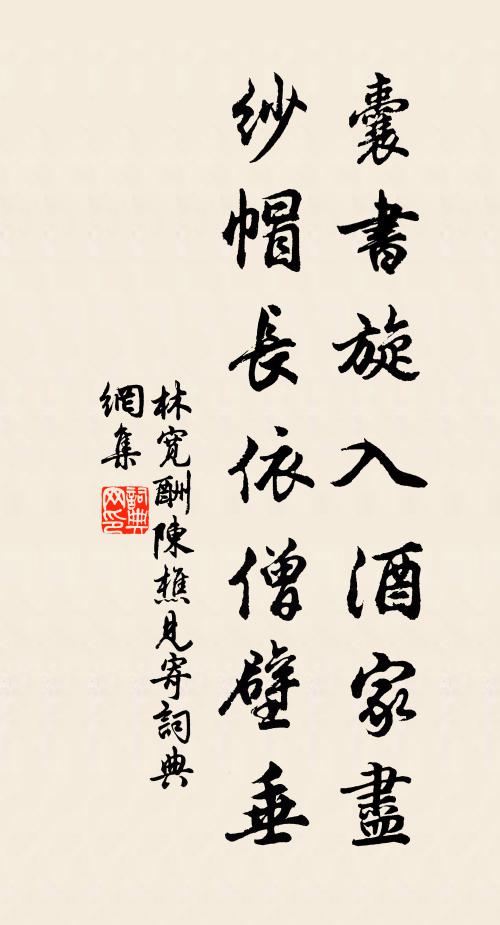 囊書旋入酒家盡
紗帽長依僧壁垂
林寬酬陳樵見寄詞典
網集
詞典
网印